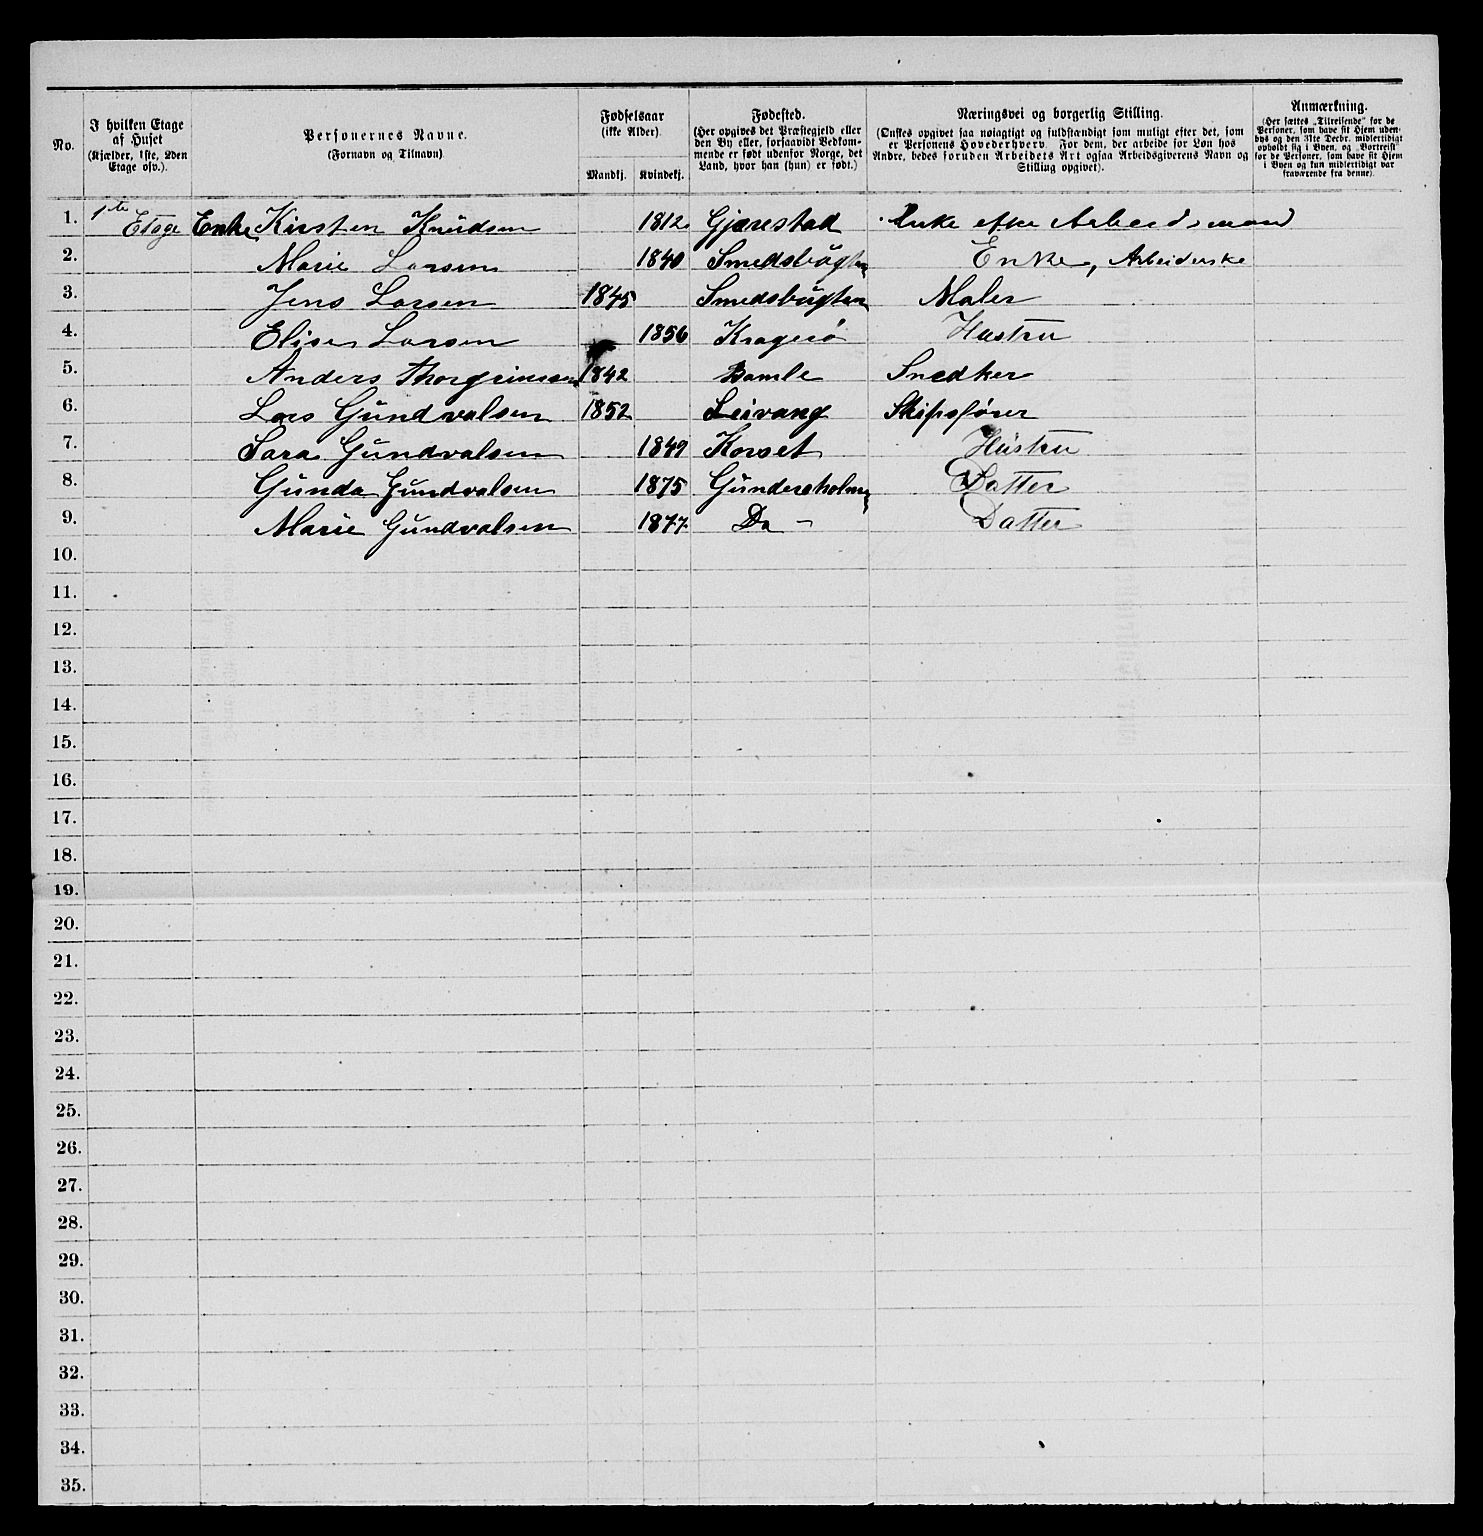 No.
I hvilken Etage
af Huset
(Kjælder, 1ste, 2den
Etage osv.).
Personernes Navne.
(Fornavn og Tilnavn)
Fødselsaar
(ikke Alder).
Mandkj. Kvindekj.
Fødested.
(Her opgives det Præstegjeld eller
den By eller, forsaavidt Vedkom-
mende er født udenfor Norge, det
Land, hvor han (hun) er født.)
Næringsvei og borgerlig Stilling.
(Ønskes opgivet saa nøiagtigt og fuldstændigt som muligt efter det, som
er Personens Hovederhverv. For dem, der arbeide for Løn hos
Andre, bedes foruden Arbeidets Art ogsaa Arbeidsgiverens Navn og
Stilling opgivet).
Anmærkning.
(Her sættes „Tilreisende“ for de
Personer, som have sit Hjem uden-
bys og den 31te Decbr. midlertidigt
opholdt sig i Byen, og „Bortreist“
for de Personer, som have sit Hjem
i Byen og kun midlertidigt var
fraværende fra denne).
1. 1ste Etage Enke Kirsten Knudsen 1812 Gjærestad Enke efter Arbeidsmand
2. Marie Larsen 1840 Smedsbugten Enke, Arbeiderske
3. Jens Larsen 1845 Smedsbugten Maler
4. Elise Larsen 1856 Kragerö Hustru
5. Anders Thorgrimsen 1842 Bamle Snedker
6. Lars Gundvalsen 1852 Leivang Skibsfører
7. Sara Gundvalsen 1849 Korset Hustru
8. Gunda Gundvalsen 1875 Gundersholmen Datter
9. Marie Gundvalsen 1877 Do - Datter
10.
11.
12.
13.
14.
15.
16.
17.
18.
19.
20.
21.
22.
23.
24.
25.
26.
27.
28.
29.
30.
31.
32.
33.
34.
35.